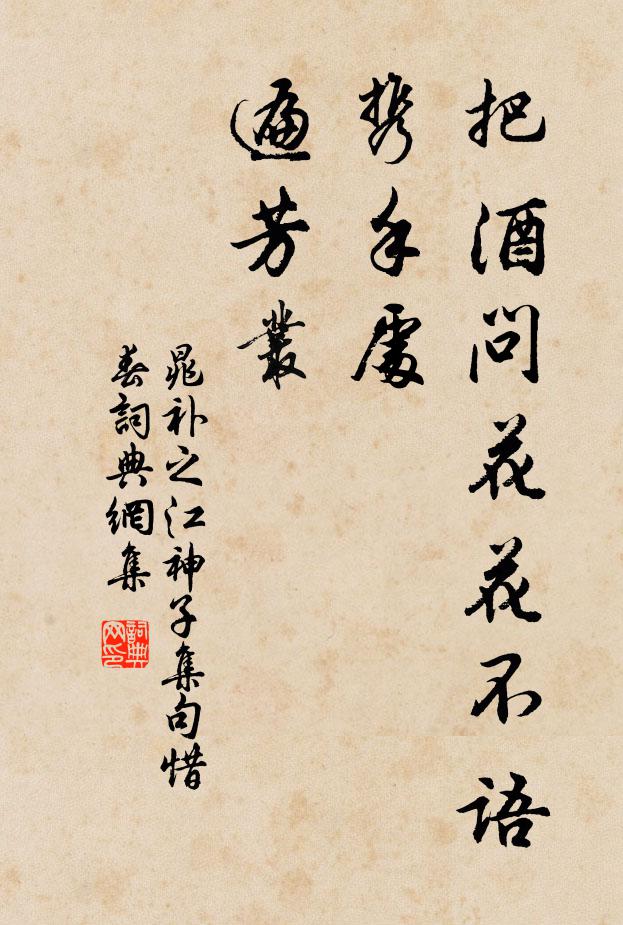 把酒問花花不語
携手處
遍芳叢
晁补之江神子集句惜
春詞典網集
詞典網印